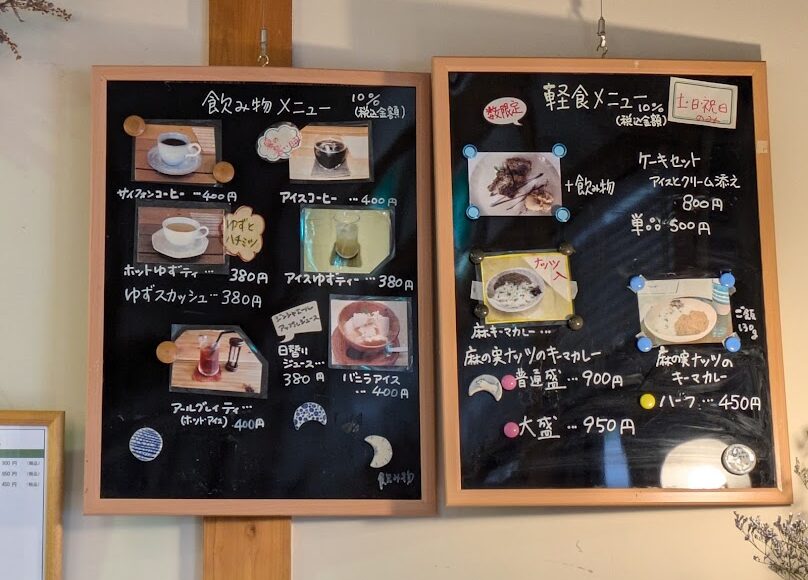 飲み物メニュー 10%
(税込金額)
サイフォンコーヒー…400円
アイスコーヒー …400円
ゆずと
ハチミツ
ホットゆずティ… 380円
アイスゆずティー…380円
ゆずスカッシュ…380円
ジンジャエール
アップルジュース
日替り
ジュース…
380円
バニラアイス
…400円
アールグレイティ…
(ホット・アイス) 400円
飲み物
軽食メニュー 10%
(税込金額)
数限定
土・日・祝日
のみ
+飲み物
ケーキセット
アイスとクリーム添え
800円
単品 500円
ナッツ
入
麻キーマカレー…
麻の実ナッツのキーマカレー
普通盛…900円
大盛…950円
ご飯
130g
麻の実ナッツの
キーマカレー
ハーフ…450円